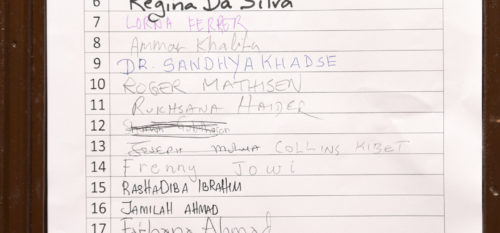 6 Regina Da Silva
7 LORNA FERRER
8 Ammar Khalifa
9 DR. SANDHYA KHADSE
10 ROGER MATHISEN
11 RUKHSANA HAIDER
12
13 JOSEPH COLLINS KIBET
14 Frenny Jowi
15 RASHADIBA IBRAHIM
16 JAMILAH AHMAD
17 Ahmad